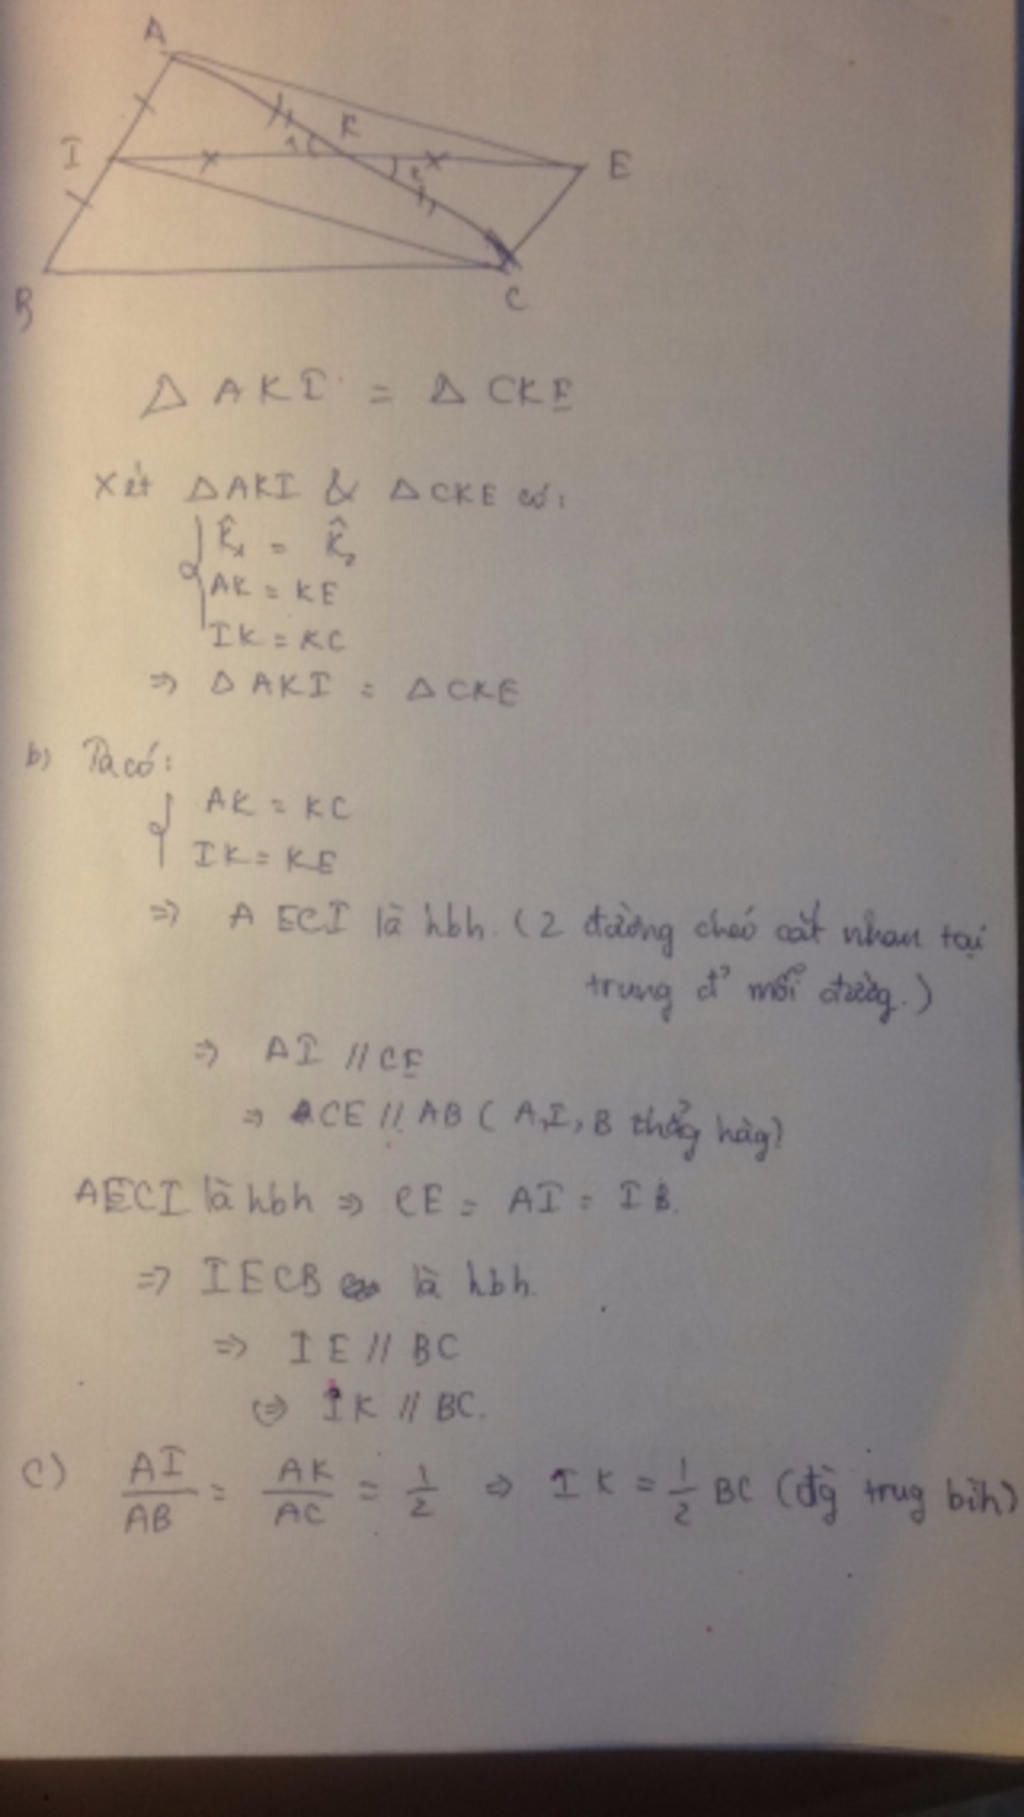 A
K
I
1
2
E
B
C
Δ AKI = Δ CKE
Xét ΔAKI & ΔCKE có:
K̂₁ = K̂₂
AK = KE
IK = KC
⇒ Δ AKI = Δ CKE
b) Ta có:
AK = KC
IK = KE
⇒ AECI là hbh. (2 đường chéo cắt nhau tại
trung đ' mỗi đường.)
⇒ AI // CE
⇒ CE // AB (A, I, B thẳg hàg)
AECI là hbh ⇒ CE = AI = IB.
⇒ IECB là hbh.
⇒ IE // BC
⇔ IK // BC.
c) AI/AB = AK/AC = 1/2 ⇒ IK = 1/2 BC (đg trug bìh)